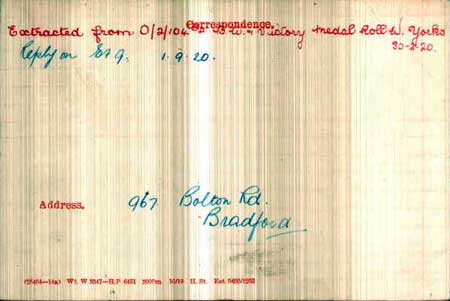 Correspondence.
Extracted from O/2/104 B.W. & Victory Medal Roll W. Yorks
20-2-20.
Reply on 1.9.20.
Address. 967 Bolton Rd.
Bradford
(25404—14a) Wt. W 5347—H.P. 6451 2000m. 10/19 H. St.